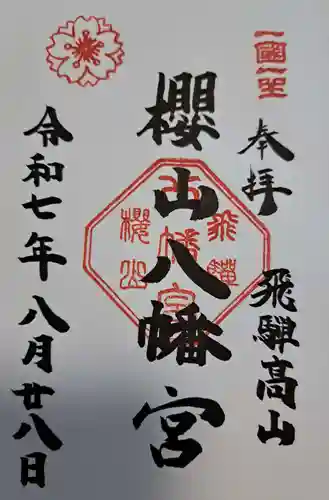 一國一社
奉拝
飛騨高山
櫻山八幡宮
飛騨
八幡宮
櫻山
令和七年八月廿八日